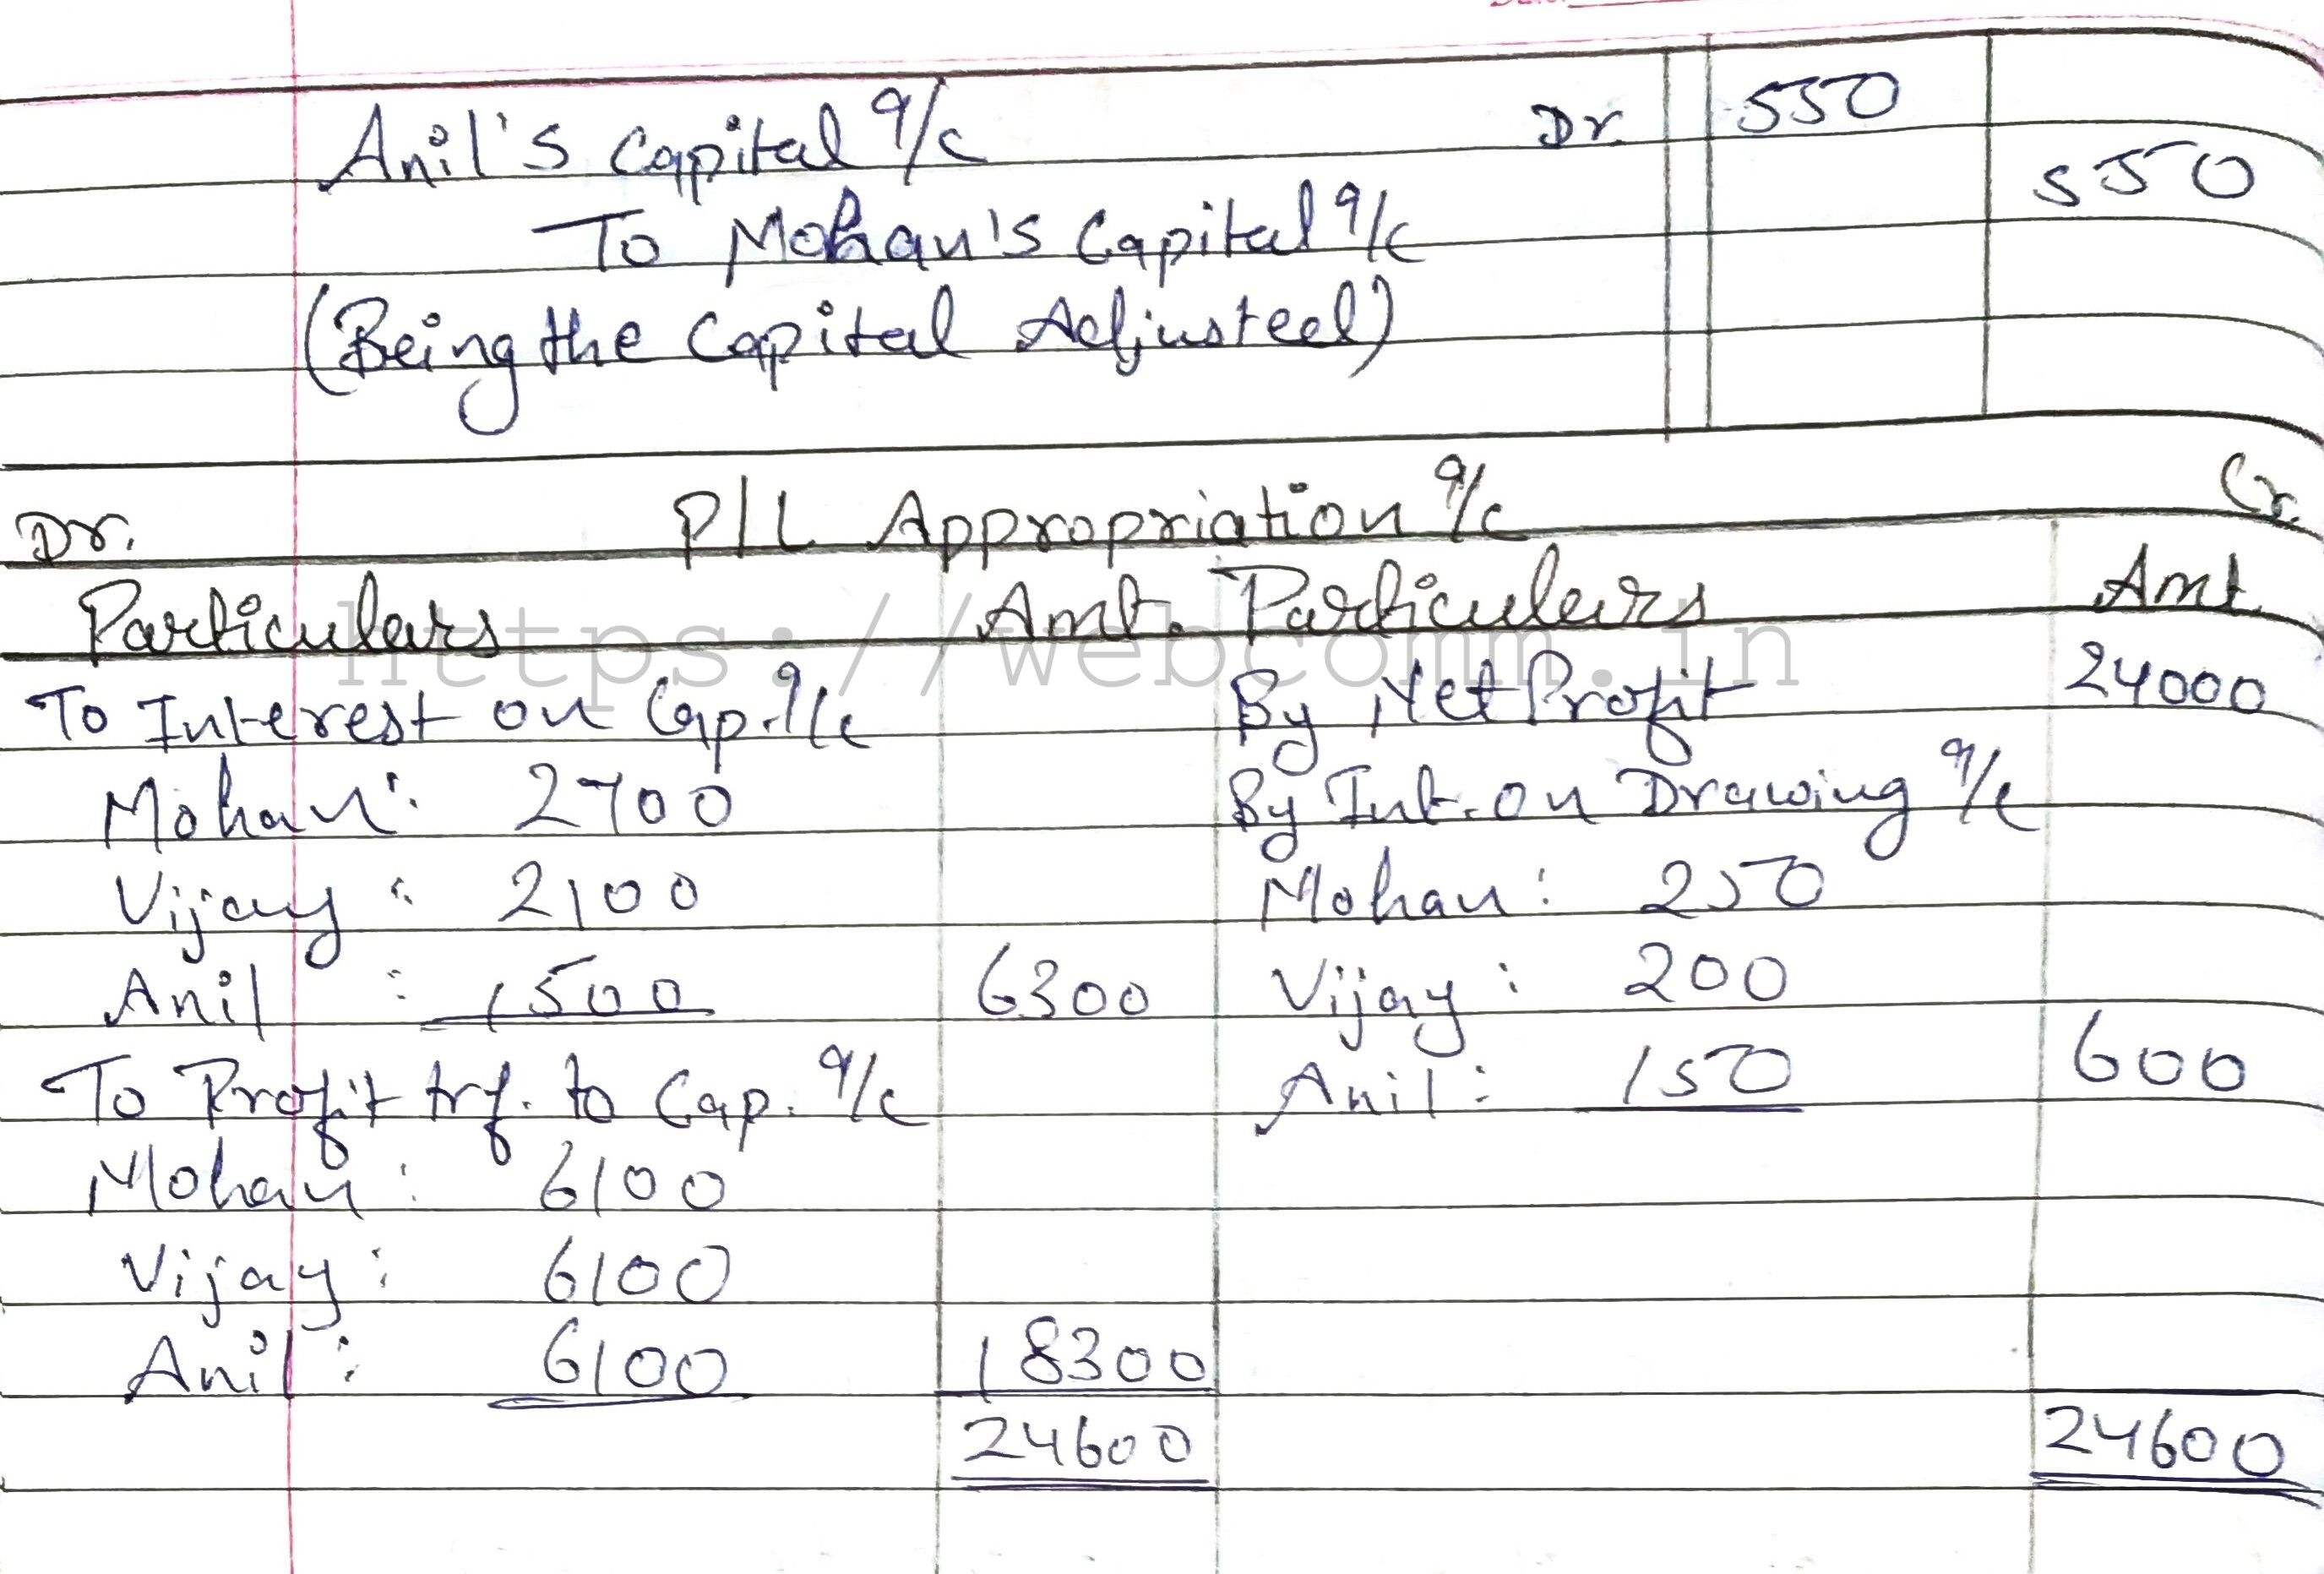 Anil's Capital a/c Dr. 550
To Mohan's Capital a/c 550
(Being the Capital Adjusted)
Dr. P/L Appropriation a/c Cr.
Particulars Amt. Particulars Amt.
To Interest on Cap. a/c By Net Profit 24000
Mohan: 2700 By Int. on Drawing a/c
Vijay: 2100 Mohan: 250
Anil: 1500 6300 Vijay: 200
To Profit trf. to Cap. a/c Anil: 150 600
Mohan: 6100
Vijay: 6100
Anil: 6100 18300
24600 24600
https://webcomm.in